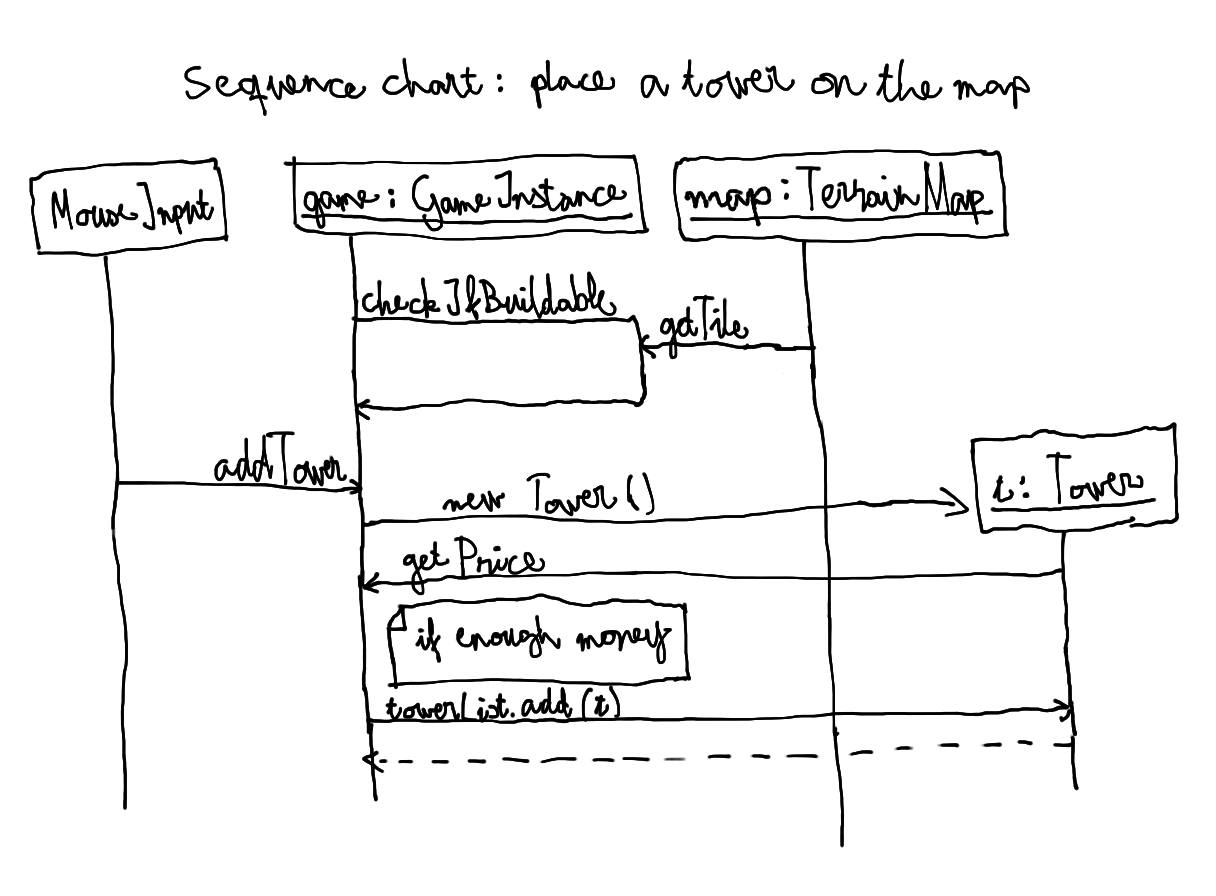 Sequence chart: place a tower on the map
MouseInput
game: GameInstance
map: TerrainMap
checkIfBuildable
getTile
addTower
new Tower()
t: Tower
getPrice
if enough money
towerList.add(t)